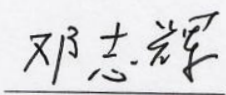 邓志辉